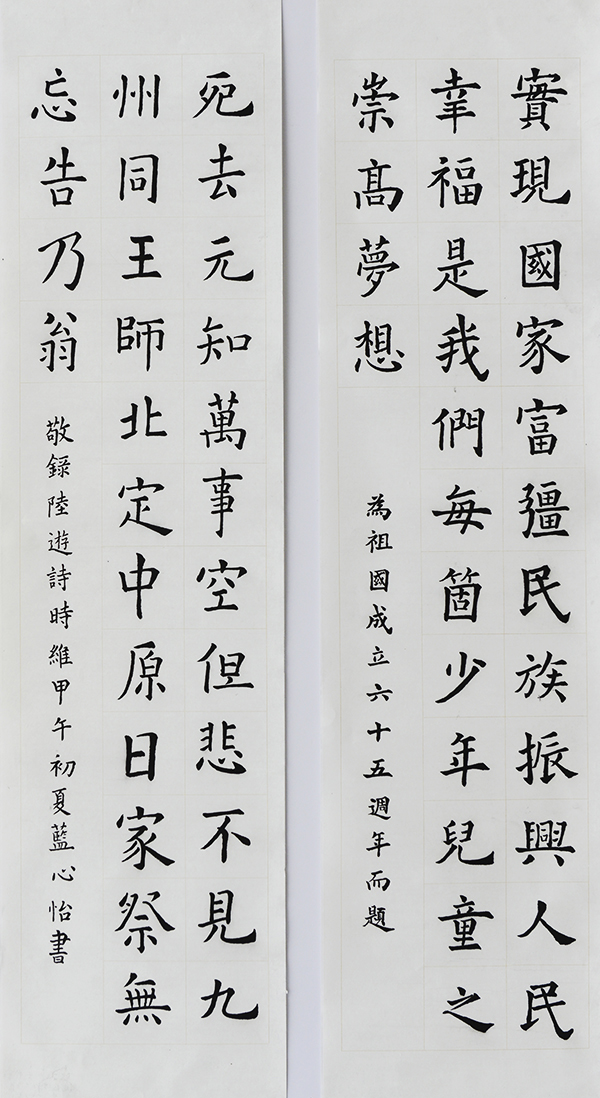 實現國家富彊民族振興人民
幸福是我們每箇少年兒童之
崇高夢想
為祖國成立六十五週年而題
死去元知萬事空但悲不見九
州同王師北定中原日家祭無
忘告乃翁
敬錄陸遊詩時維甲午初夏藍心怡書